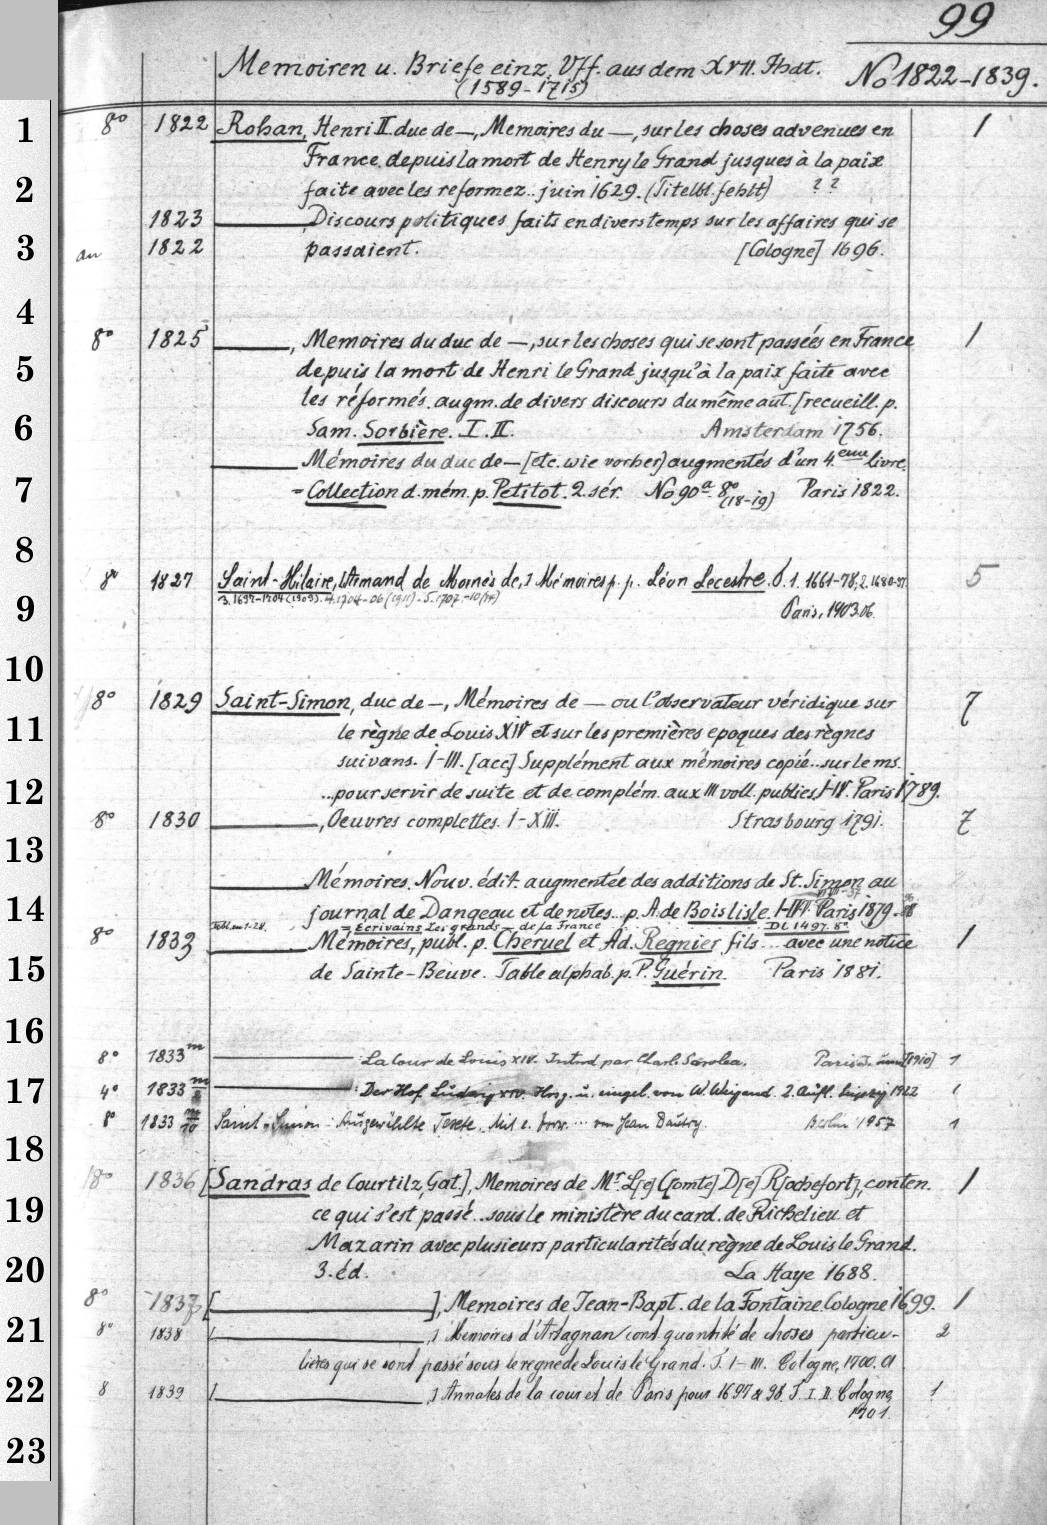 99
Memoiren u. Briefe einz. Vff. aus dem XVII. Jhdt.
(1589-1715)
No 1822-1839.
1
8° 1822 Rohan, Henri II. duc de —, Memoires du —, sur les choses advenues en 1
France depuis la mort de Henry le Grand jusques à la paix
2
faite avec les reformez.. juin 1629. (Titelbl. fehlt) ??
1823 ———, Discours politiques faits en divers temps sur les affaires qui se
3
an 1822 passaient. [Cologne] 1696.
4
8° 1825 ———, Memoires du duc de —, sur les choses qui se sont passées en France 1
5
depuis la mort de Henri le Grand jusqu'à la paix faite avec
les réformés. augm. de divers discours du même aut. [recueill. p.
6
Sam. Sorbière. I. II. Amsterdam 1756.
——— Mémoires du duc de — [etc. wie vorher] augmentés d'un 4.eme livre.
7
= Collection d. mém. p. Petitot. 2. sér. No 90a. 8° (18-19) Paris 1822.
8
8° 1827 Saint-Hilaire, Armand de Mormès de, Mémoires p. p. Léon Lecestre. 1. 1661-78, 2. 1680-97. 5
3. 1697-1704 (1909). 4. 1704-06 (1911). 5. 1707-10
9
Paris, 1903.06.
10
8° 1829 Saint-Simon, duc de —, Mémoires de — ou l'observateur véridique sur 7
11
le règne de Louis XIV et sur les premières epoques des règnes
suivans. I-III. [acc] Supplément aux mémoires copié.. sur le ms.
12
..pour servir de suite et de complém. aux III voll. publies I-IV. Paris 1789.
8° 1830 ———, Oeuvres complettes. I-XIII. Strasbourg 1791. 7
13
——— Mémoires. Nouv. édit. augmentée des additions de St. Simon au
14
journal de Dangeau et de notes... p. A. de Boislisle. Paris 1879-
= Ecrivains Les grands — de la France DL 1497. 8°
8° 1833 ——— Mémoires, publ. p. Cheruel et Ad. Regnier fils... avec une notice 1
15
de Sainte-Beuve. Table alphab. p. P. Guérin. Paris 1881.
16
8° 1833m ——— La Cour de Louis XIV. Introd par Charl. Sarolea. Paris [1910] 1
17
4° 1833m ———: Der Hof Ludwig XIV. Hrsg. u. eingel. von W. Weigand. 2. Aufl. Leipzig 1922 1
8° 1833m Saint-Simon: Ausgewählte Texte. Mit e. Vorw. ... von Jean Dautry. Berlin 1957 1
18
8° 1836 [Sandras de Courtilz, Gat.], Memoires de Mr. L[e] C[omte] D[e] R[ochefort], conten. 1
19
ce qui s'est passé.. sous le ministère du card. de Richelieu et
Mazarin avec plusieurs particularités du règne de Louis le Grand.
20
3. éd. La Haye 1688.
8° 1837 [———], Memoires de Jean-Bapt. de la Fontaine. Cologne 1699. 1
21
8° 1838 [———,] Memoires d'Artagnan, cont quantité de choses particu- 2
lières qui se sont passé sous le regne de Louis le Grand. T. I-III. Cologne, 1700.01
22
8 1839 [———,] Annales de la cour et de Paris pour 1697 & 98. T. I. II. Cologne, 1
1701.
23